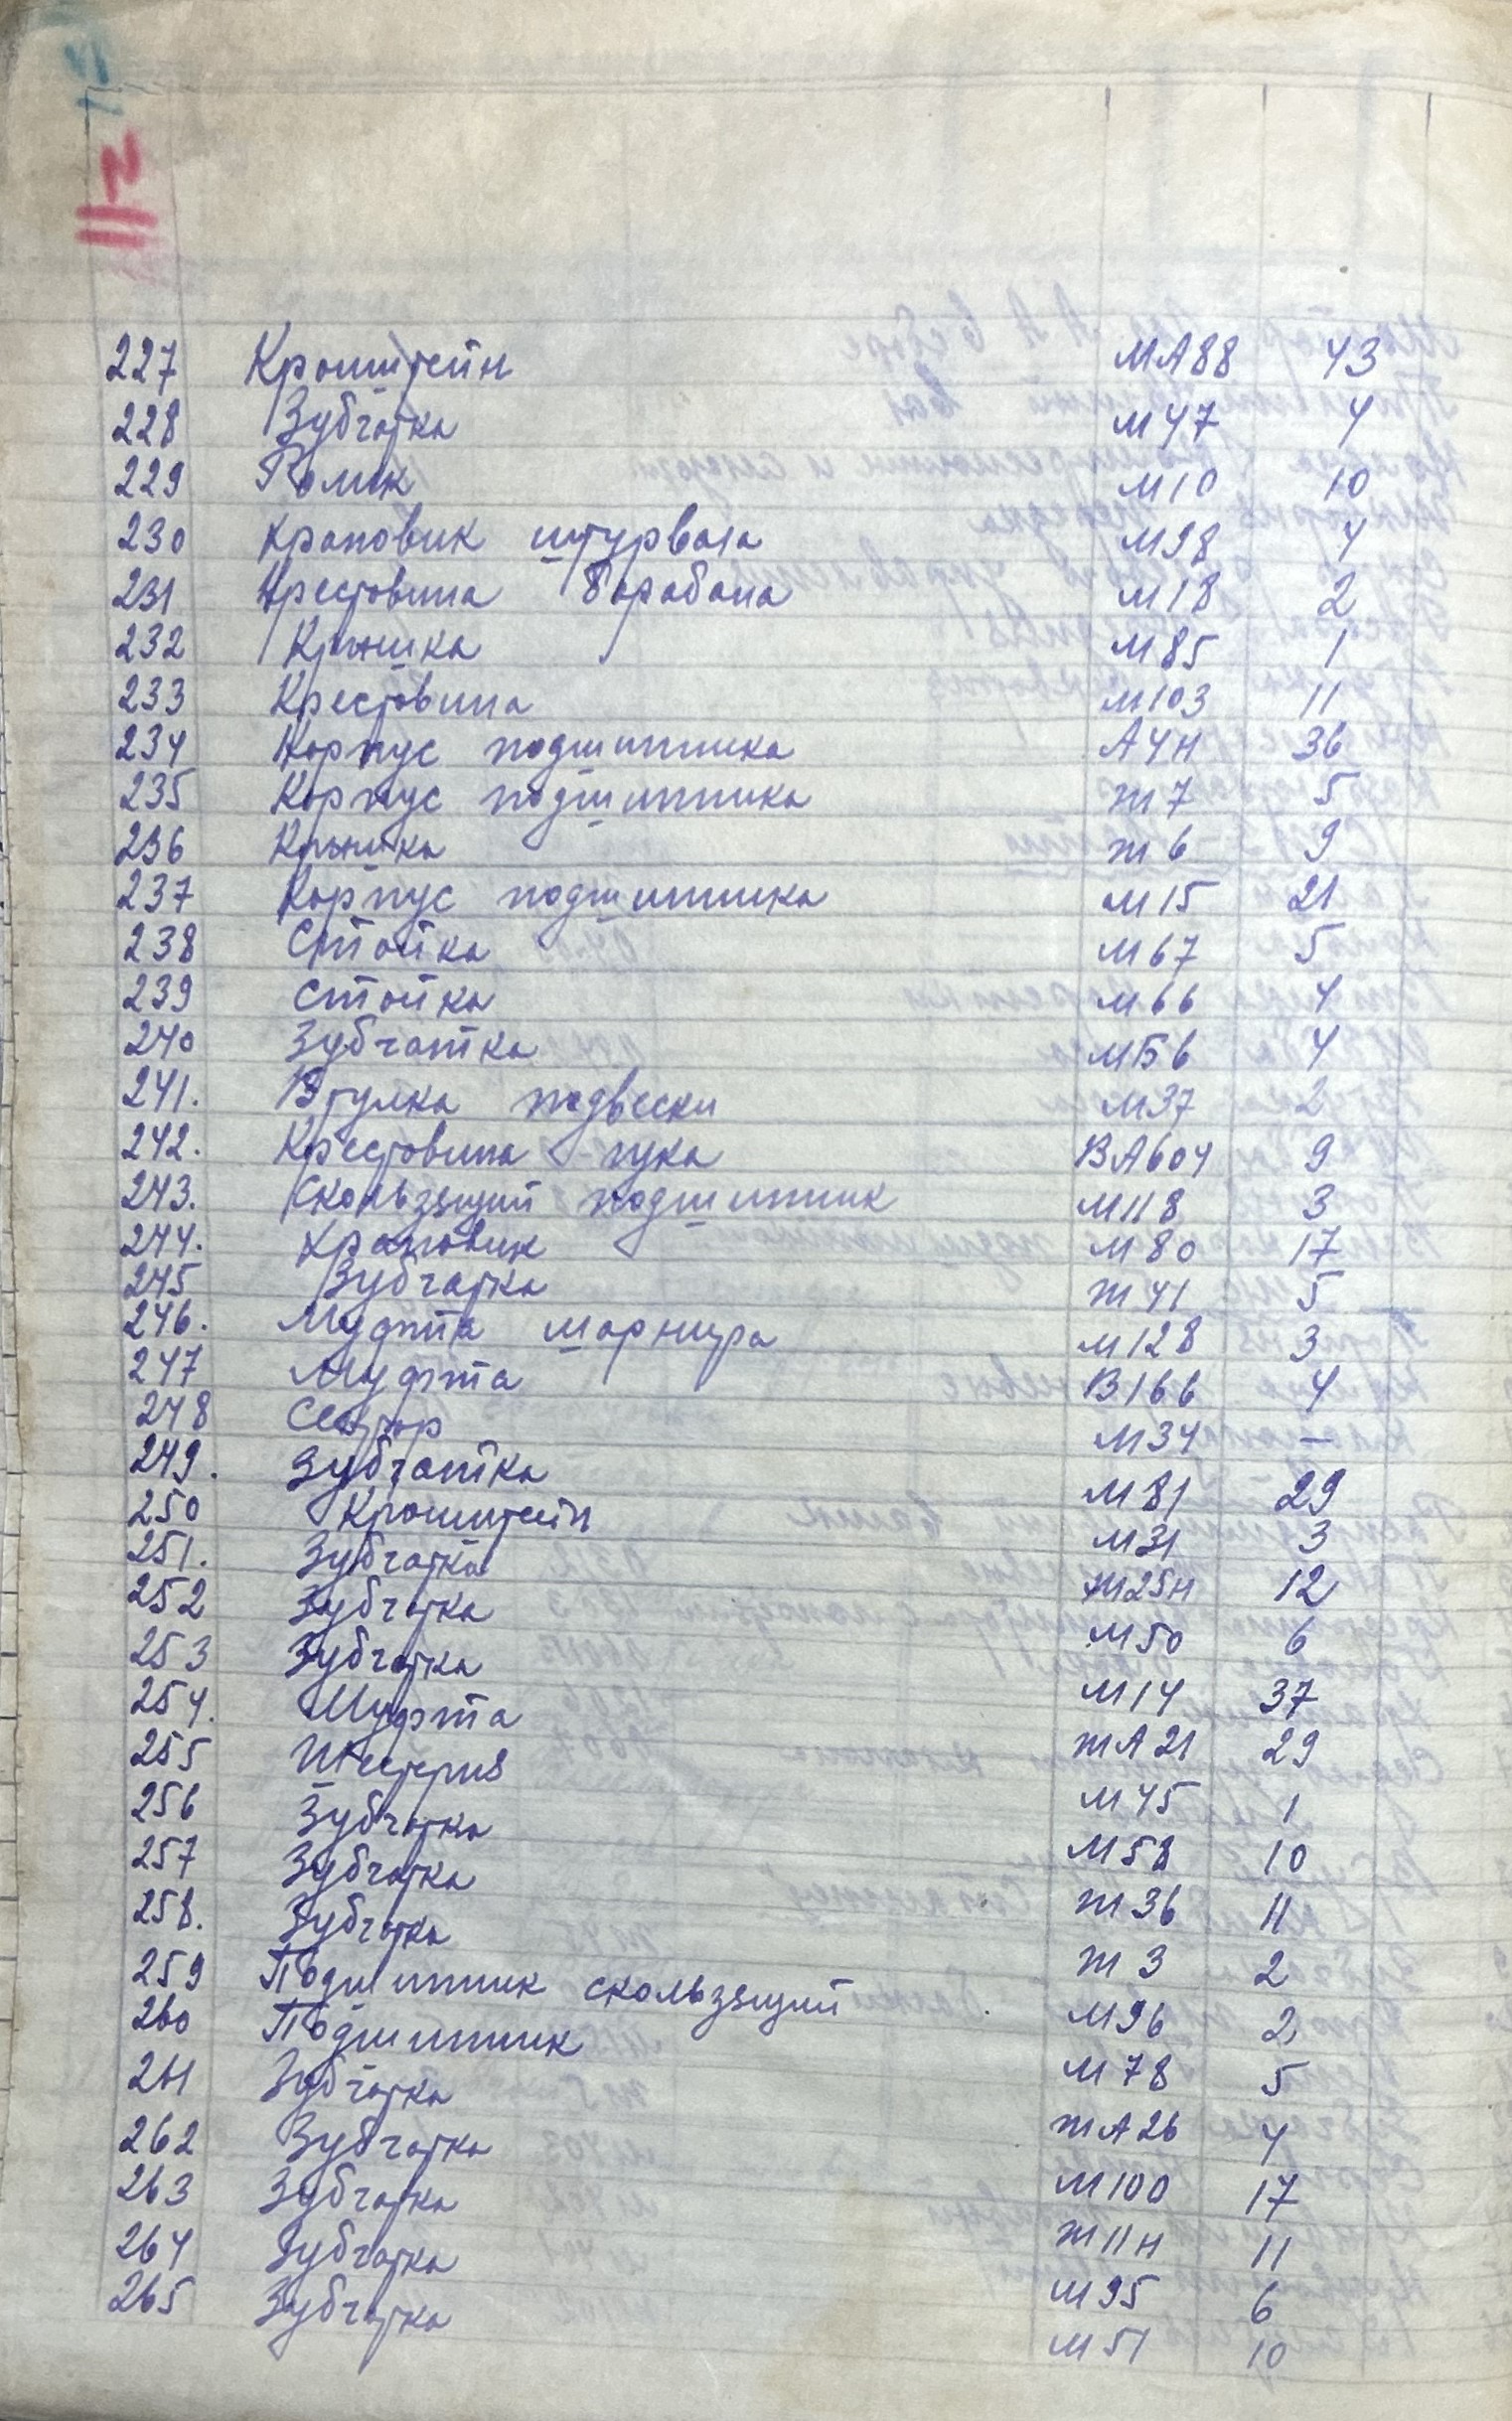 227 Кронштейн МА88 43
228 Зубчатка М47 4
229 Ролик М10 10
230 Храповик штурвала М98 4
231 Крестовина барабана М18 2
232 Крышка М85 1
233 Крестовина М103 11
234 Корпус подшипника А4Н 36
235 Корпус подшипника т7 5
236 Крышка т6 9
237 Корпус подшипника М15 21
238 Стойка М67 5
239 Стойка М66 4
240 Зубчатка МБ6 4
241. Втулка подвески М37 2
242. Крестовина гука ВА604 9
243. Скользящий подшипник М118 3
244. Храповик М80 17
245 Зубчатка т41 5
246. Муфта шарнира М128 3
247 Муфта В166 4
248 Сектор М34 —
249. Зубчатка М81 29
250 Кронштейн М31 3
251. Зубчатка т25н 12
252 Зубчатка М50 6
253 Зубчатка М14 37
254. Муфта тА21 29
255 Шестерня М45 1
256 Зубчатка М58 10
257 Зубчатка т36 11
258. Зубчатка т3 2
259 Подшипник скользящий М96 2
260 Подшипник М78 5
261 Зубчатка тА26 4
262 Зубчатка М100 17
263 Зубчатка т11н 11
264 Зубчатка М95 6
265 Зубчатка М51 10